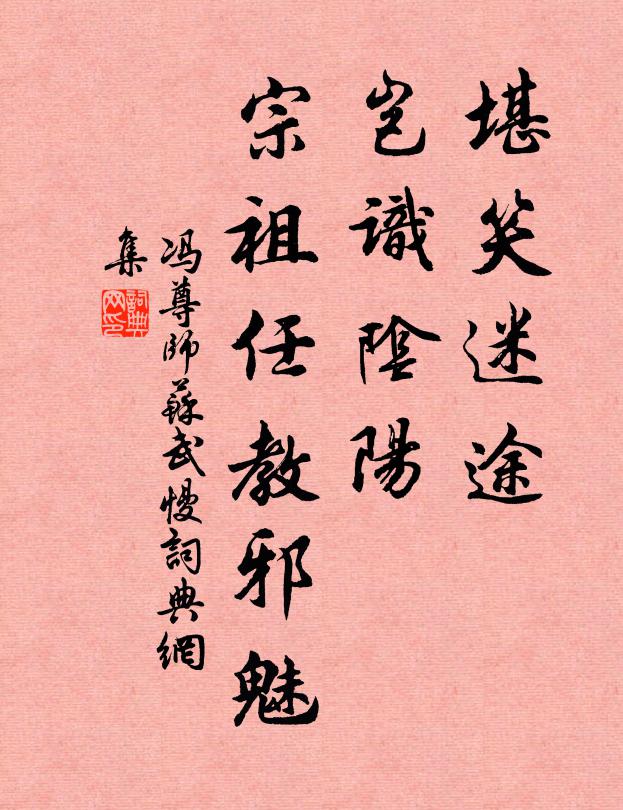 堪笑迷途
岂識陰陽
宗祖任教邪魅
冯尊師蘇武慢詞典網
集
詞典
网印